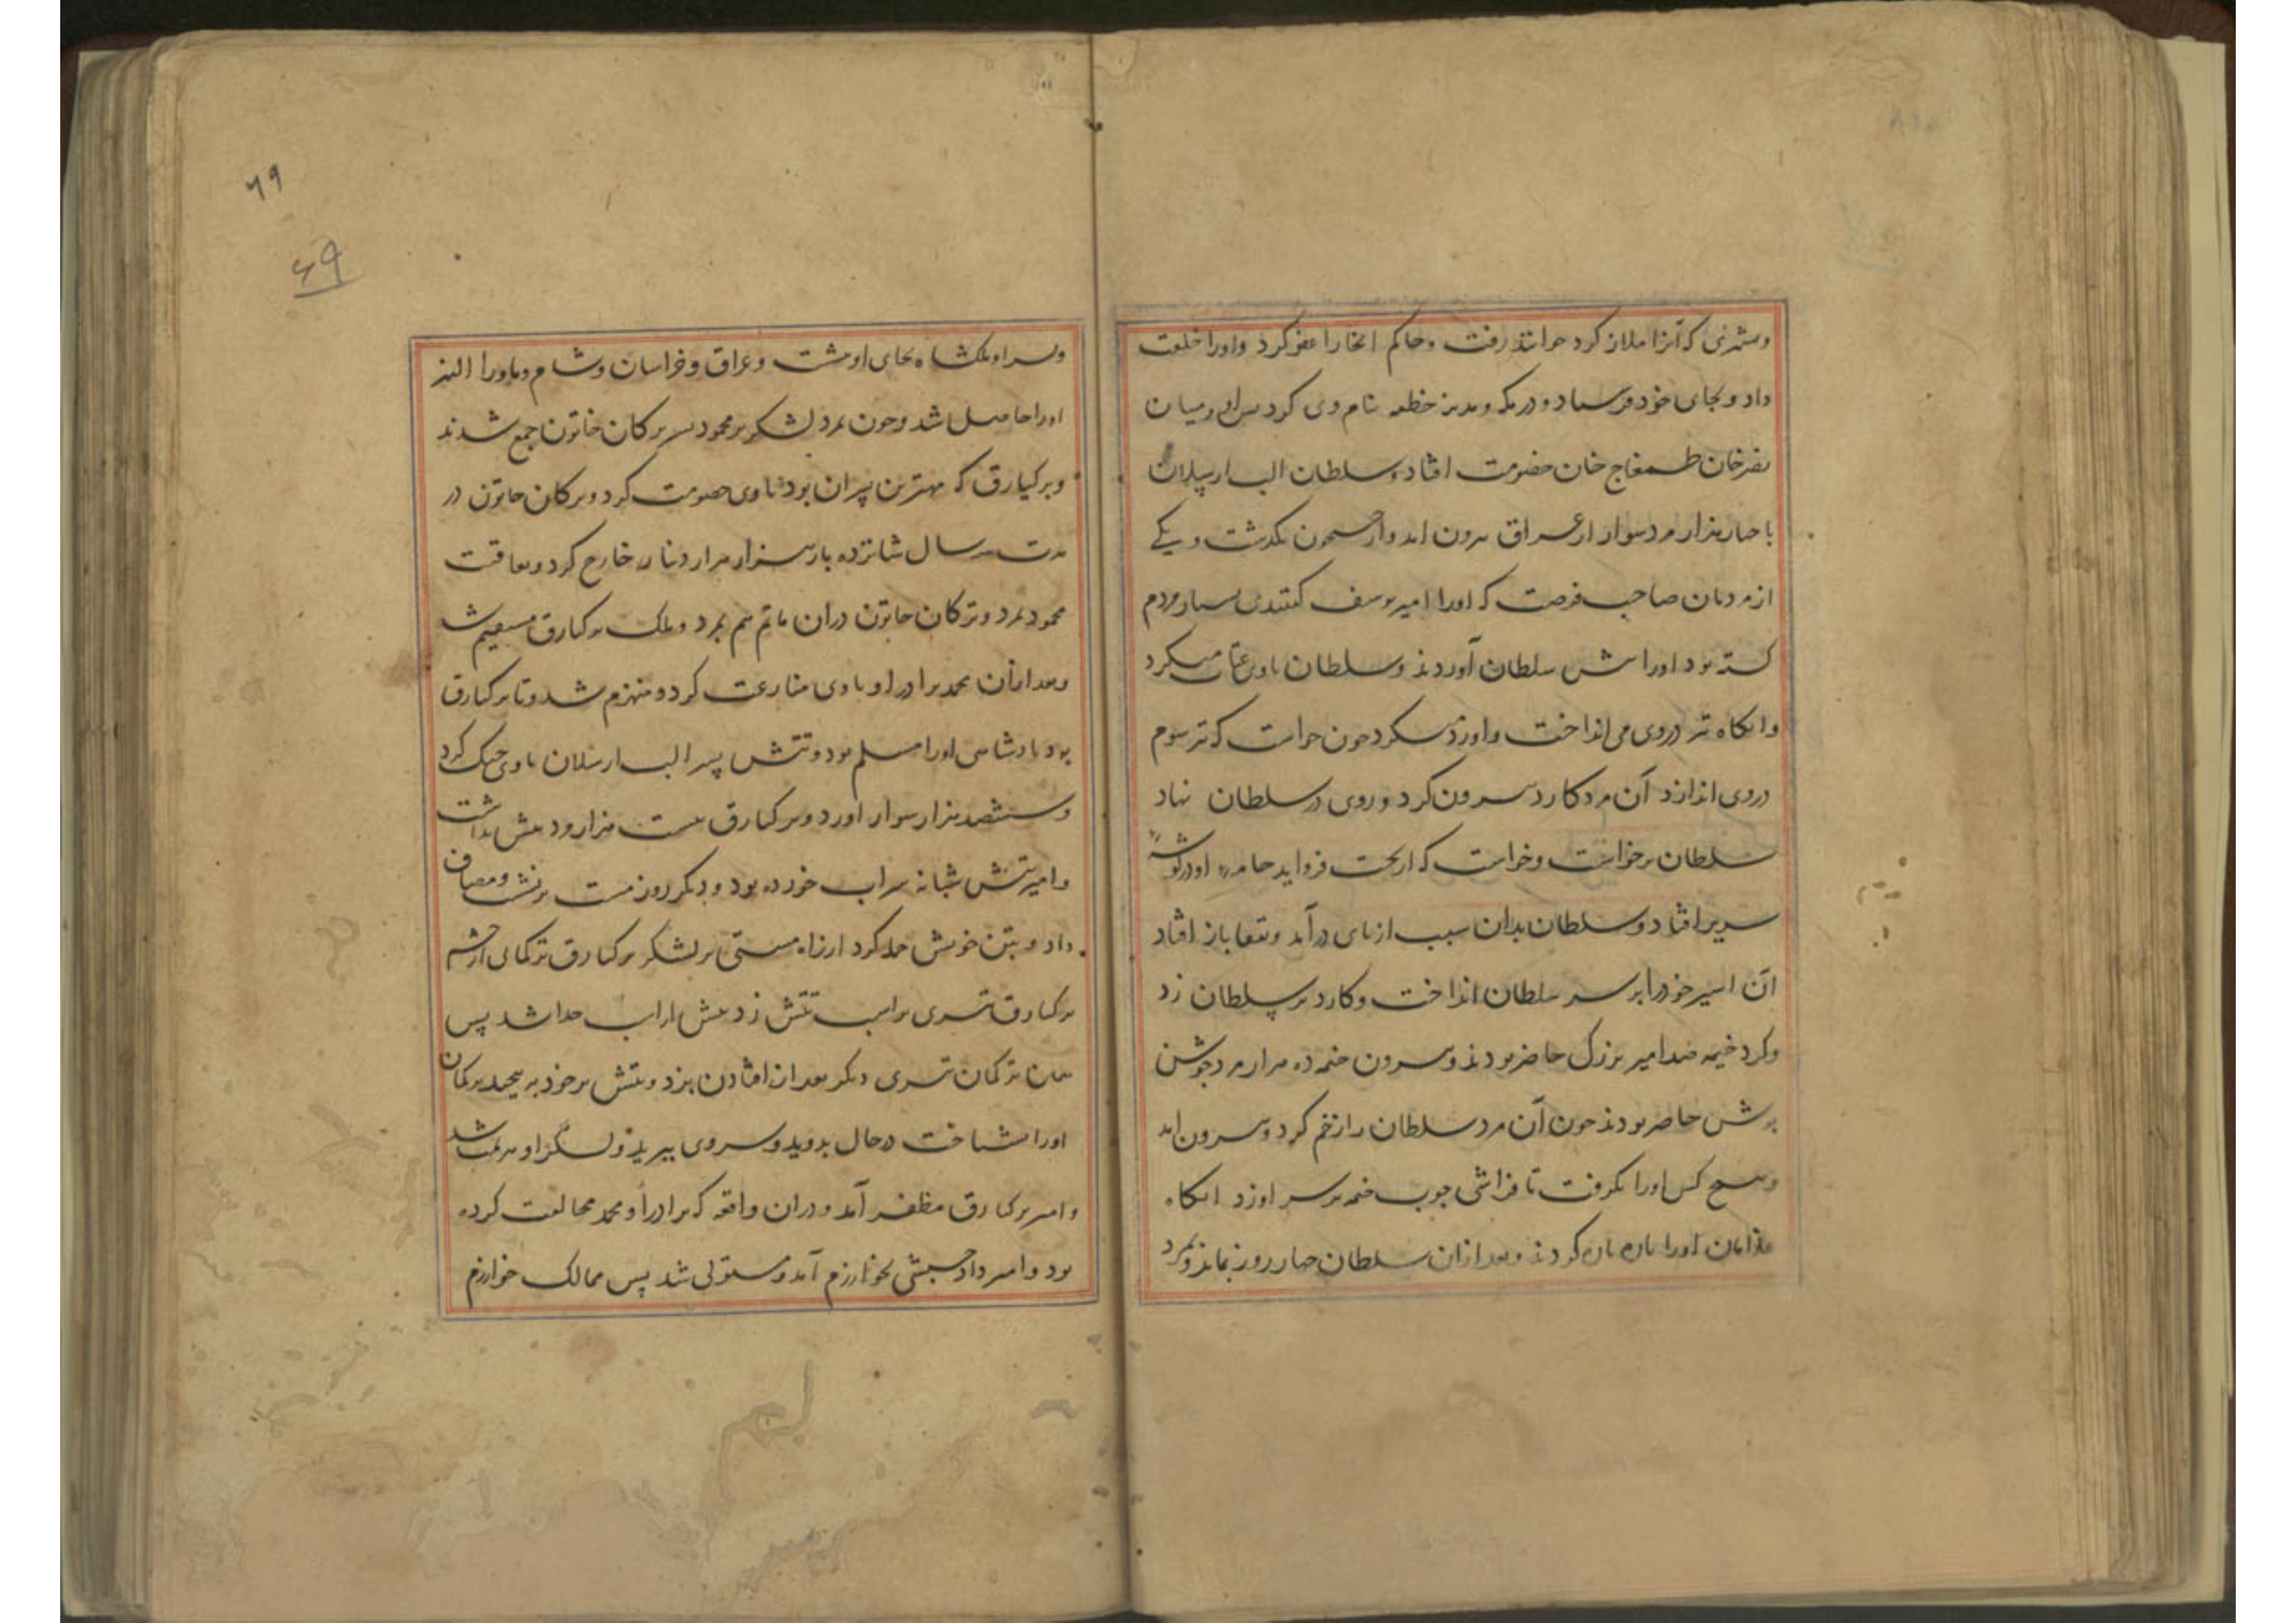 وبشهری که آنرا ملازکرد خوانند رفت وحاکم انجا را عفو کرد و اورا خلعت
داد و بجای خود فرستاد و در مکه و مدینه خطبه بنام وی کرد پس او میان
خان طمغاج خان خصومت افتاد و سلطان الب ارسلان
با هزار مرد سوار از عراق بیرون امد و از جیحون بگذشت و یکی
از مردمان صاحب فرصت که اورا امیر یوسف گفتندی بسیار مردم
کشته بود اورا پیش سلطان آوردند و سلطان با وی عتاب میکرد
وانگاه تیر در وی می انداخت و اورد میکرد چون خواست که تیر سوم
در وی اندازد آن مرد کارد بیرون کرد و روی در سلطان نهاد
سلطان برخواست وخواست که از تخت فرو اید جامه او در گوشه
سریر افتاد و سلطان بدان سبب از پای درآمد و بقفا باز افتاد
آن اسیر خود را بر سر سلطان انداخت و کارد بر سلطان زد
وکرد خیمه صد امیر بزرگ حاضر بودند و بیرون خیمه ده هزار مرد جوشن
پوش حاضر بودند چون آن مرد سلطان را زخم کرد و بیرون امد
وهیچ کس اورا نگرفت تا فراشی چوب خیمه بر سر او زد انگاه
غلامان اورا پاره پاره کردند و بعد ازان سلطان چهار روز بماند و بمرد
۶۹
۶۹
وپسر او ملکشاه بجای او بنشست و عراق و خراسان و شام و ماورا النهر
اورا حاصل شد و چون بمرد لشکر بر محمود پسر ترکان خاتون جمع شدند
وبرکیارق که مهترین پسران بود با وی خصومت کرد و ترکان خاتون در
مدت سه سال شانزده بار هزار هزار دینار خارج کرد و بعاقبت
محمود بمرد و ترکان خاتون دران ماتم هم بمرد و ملک برکیارق مستقیم شد
وبعد ازان محمد برادر او با وی منازعت کرد و منهزم شد و تا برکیارق
بود پادشاهی اورا مسلم بود و تتش پسر الب ارسلان با وی جنگ کرد
و ششصد هزار سوار اورد و برکیارق بیست هزار مرد بیش نداشت
وامیر تتش شبانه شراب خورده بود و دیگر روز مست برنشست و مصاف
داد و بتن خویش حمله کرد از راه مستی بر لشکر برکیارق ترکمانی از حشم
برکیارق تیری بر اسب تتش زد تتش از اسب جدا شد پس
همان ترکمان تیری دیگر بعد از افتادن بزد و تتش بر خود به پیچید ترکمان
اورا بشناخت درحال بدوید و سر وی ببرید و لشکر او هزیمت شد
وامیر برکیارق مظفر آمد و دران واقعه که برادر او محمد مخالفت کرده
بود و امیر داد حبشی بخوارزم آمد و مستولی شد پس ممالک خوارزم